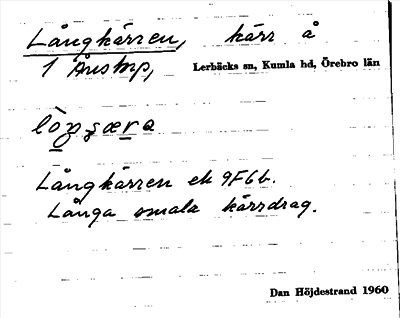 Långkärren, kärr å
1 Ånstorp, Lerbäcks sn, Kumla hd, Örebro län
Långkärren ek 9F6b.
Långa smala kärrdrag.
Dan Höjdestrand 1960